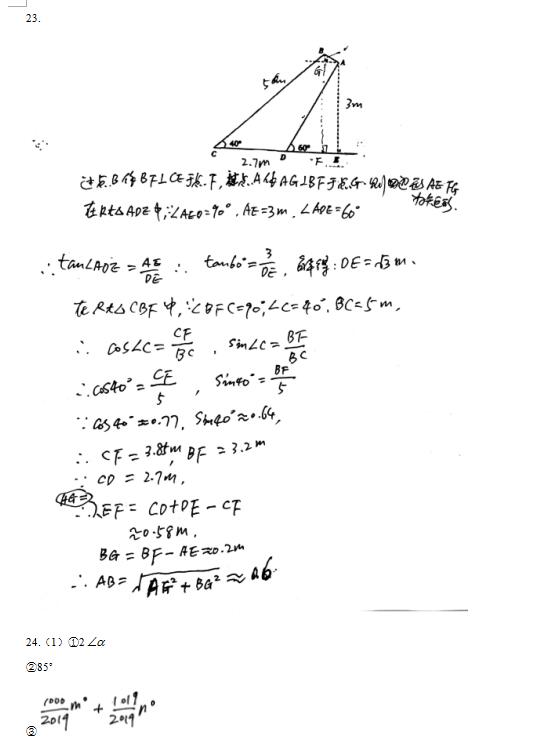 23.
B
A
G
5m
3m
40°
60°
C
D
F
E
2.7m
过点B作BF⊥CE于点F,过点A作AG⊥BF于点G.则四边形AEFG
为矩形.
在Rt△ADE中,∵∠AED=90°,AE=3m,∠ADE=60°
∴tan∠ADE=AE/DE ∴ tan60°=3/DE,解得:DE=√3m.
在Rt△CBF中,∵∠BFC=90°,∠C=40°,BC=5m,
∴ cos∠C=CF/BC,sin∠C=BF/BC
∴cos40°=CF/5,sin40°=BF/5
∵cos40°≈0.77,sin40°≈0.64,
∴ CF=3.85m,BF=3.2m
∵ CD=2.7m,
AG=
∴EF=CD+DE-CF
≈0.58m.
BG=BF-AE≈0.2m
∴AB=√(AG²+BG²)≈0.6
24.(1)①2∠α
②85°
1000/2019 m°+1019/2019 n°
③